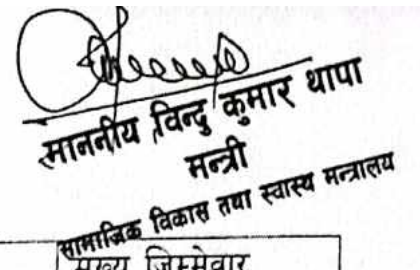 माननीय विन्दु कुमार थापा
मन्त्री
सामाजिक विकास तथा स्वास्थ्य मन्त्रालय
मुख्य जिम्मेवार